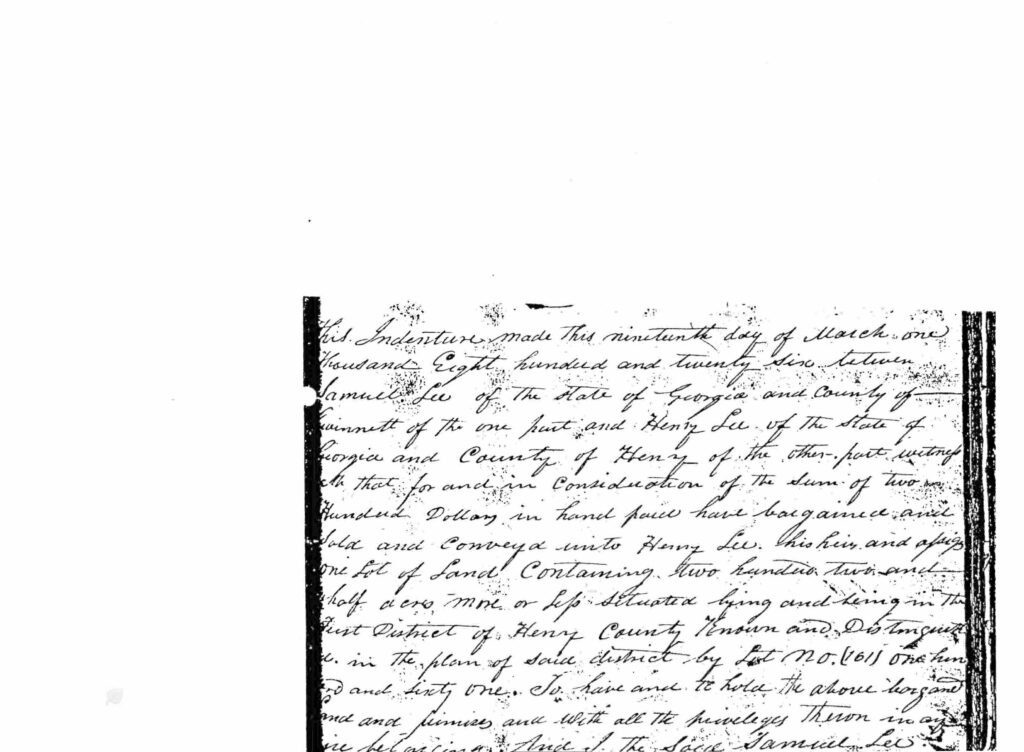 This Indenture made this nineteenth day of March one
Thousand Eight hundred and twenty six between
Samuel Lee of the State of Georgia and County of
Gwinnett of the one part and Henry Lee of the State of
Georgia and County of Henry of the other part witness
eth that for and in Consideration of the Sum of two
Hundred Dollars in hand paid have bargained and
Sold and Conveyd unto Henry Lee his heirs and assigs
one Lot of Land Containing two hundred two and
half acres more or less Situated lying and being in the
First District of Henry County Known and Distinguish
d. in the plan of said district by Lot No. (161) one hun
red and sixty one. To have and to hold the above bargand
land and premises and with all the privileges theron in any
belonging. And I the Said Samuel Lee